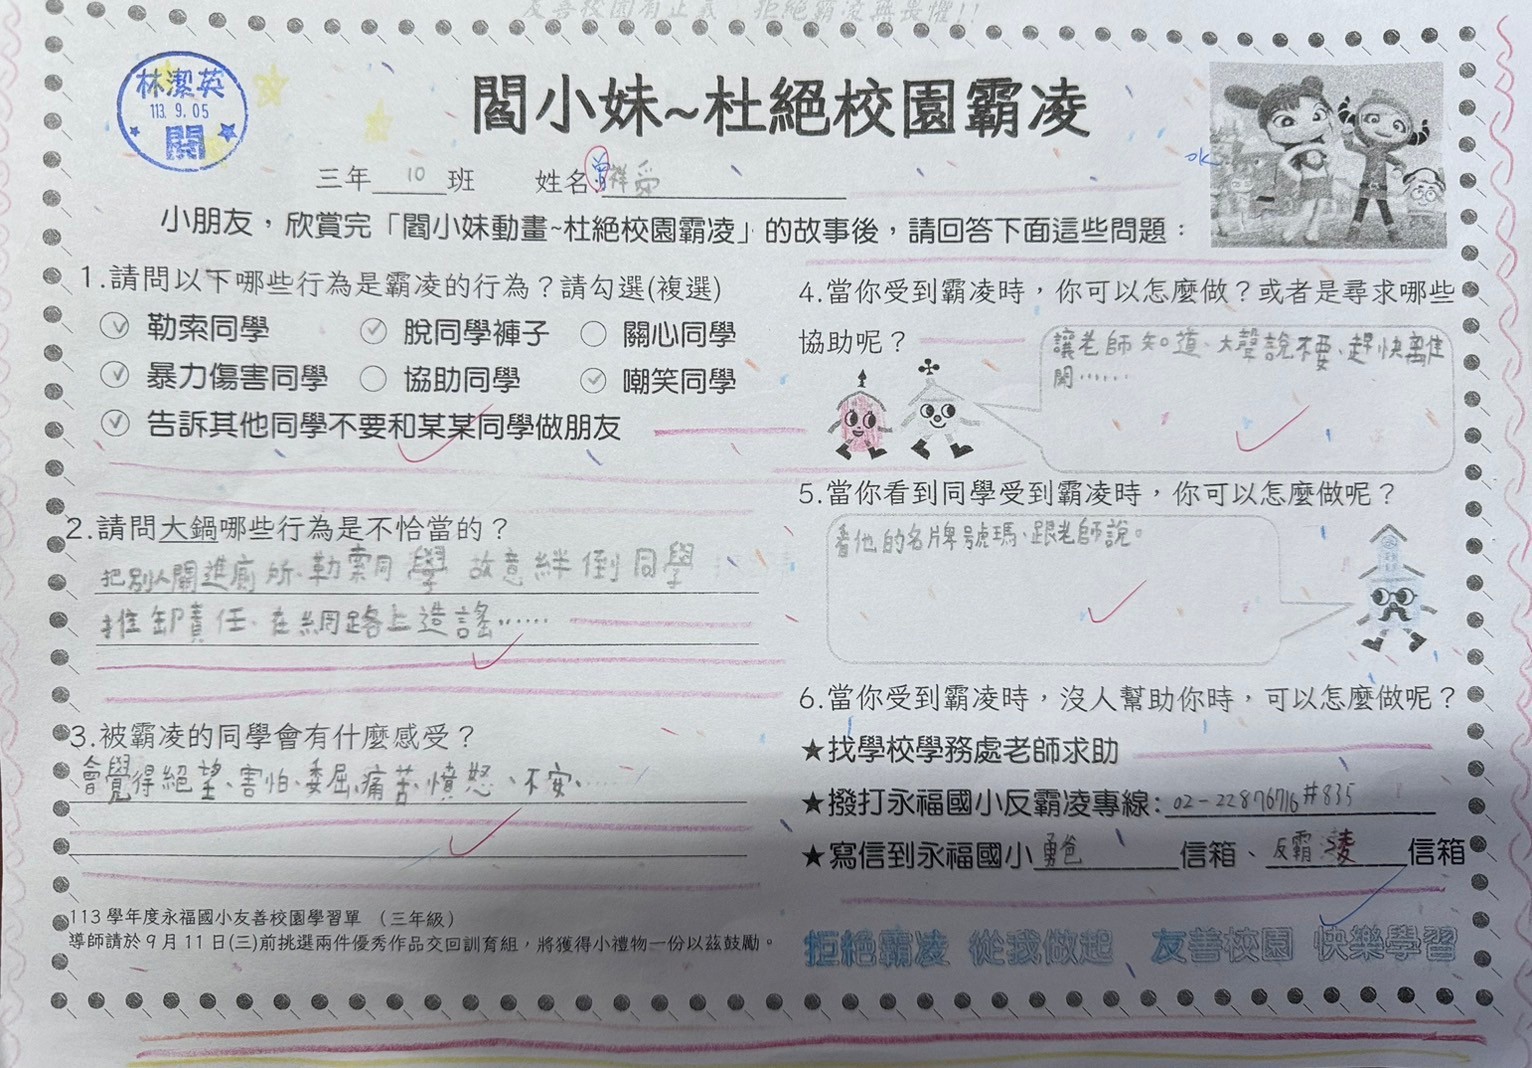 友善校園有正義 拒絕霸凌無畏懼!!
林潔英
113.9.05
閱
閻小妹~杜絕校園霸凌
三年10班 姓名
小朋友，欣賞完「閻小妹動畫~杜絕校園霸凌」的故事後，請回答下面這些問題：
1.請問以下哪些行為是霸凌的行為？請勾選(複選)
勒索同學 脫同學褲子 關心同學
暴力傷害同學 協助同學 嘲笑同學
告訴其他同學不要和某某同學做朋友
2.請問大鍋哪些行為是不恰當的？
把別人關進廁所、勒索同學 故意絆倒同學
推卸責任、在網路上造謠……
3.被霸凌的同學會有什麼感受？
會覺得絕望、害怕、委屈、痛苦、憤怒、不安、……
113學年度永福國小友善校園學習單 (三年級)
導師請於9月11日(三)前挑選兩件優秀作品交回訓育組，將獲得小禮物一份以茲鼓勵。
4.當你受到霸凌時，你可以怎麼做？或者是尋求哪些
協助呢？
讓老師知道、大聲說不要、趕快離
開……
5.當你看到同學受到霸凌時，你可以怎麼做呢？
看他的名牌號瑪、跟老師說。
6.當你受到霸凌時，沒人幫助你時，可以怎麼做呢？
★找學校學務處老師求助
★撥打永福國小反霸凌專線：02-22876716#835
★寫信到永福國小勇爸信箱、反霸凌信箱
拒絕霸凌 從我做起 友善校園 快樂學習